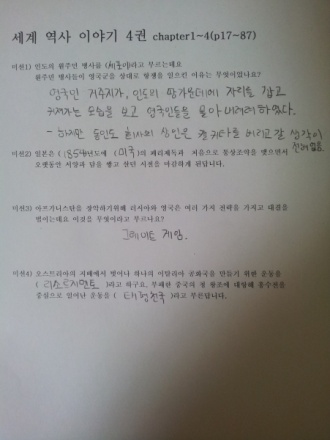 세계 역사 이야기 4권 chapter1~4(p17~87)
미션1) 인도의 원주민 병사를 (세포이)라고 부르는데요
원주민 병사들이 영국군을 상대로 항쟁을 일으킨 이유는 무엇이었나요?
영국인 거주자가, 인도의 자리를 잡고
모습을 보고 영국인들을 몰아내려 하였다.
- 하지만 동인도 회사의 상인은 캘커타를 버리고 갈 생각이
미션2) 일본은 (1854)년도에 (미국)의 페리제독과 처음으로 통상조약을 맺으면서
오랫동안 서양과 담을 쌓고 살던 시절을 마감하게 된답니다.
미션3) 아프가니스탄을 장악하기위해 러시아와 영국은 여러 가지 전략을 가지고 대결을
벌이는데요 이것을 무엇이라고 부르나요?
그레이트 게임.
미션4) 오스트리아의 지배에서 벗어나 하나의 이탈리아 공화국을 만들기 위한 운동을
( 리소르지멘토 )라고 하구요. 부패한 중국의 청 왕조에 대항해 홍수전을
중심으로 일어난 운동을 ( 태평천국 )라고 부른답니다.